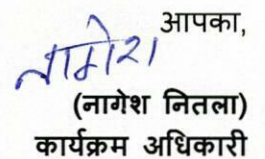 आपका,
नागेश
(नागेश नितला)
कार्यक्रम अधिकारी